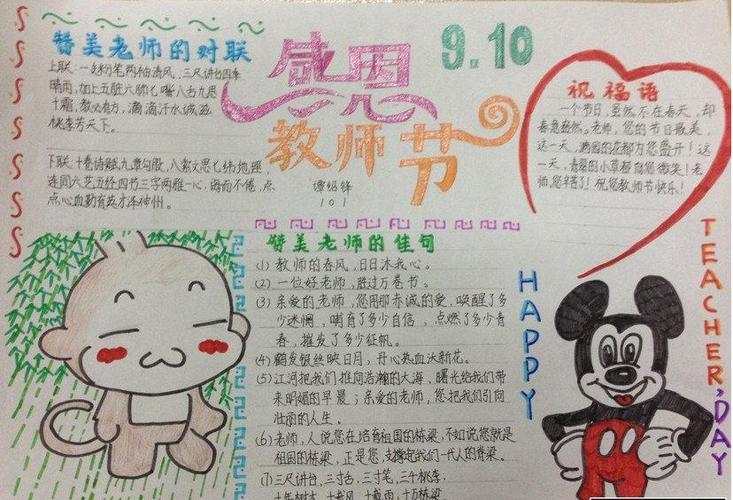 赞美老师的对联
上联:一支粉笔两袖清风,三尺讲台四季
晴雨,加上五脏六腑七嘴八舌九思
十霜,教必有方,滴滴汗水诚滋
桃李芳天下。
下联:十卷诗赋九章勾股,八索文思七纬地理,
连同六艺五经四节三字两雅一心,诲而不倦,点
点心血勤育英才泽神州。
感恩
教师节
9.10
101
祝福语
一个节日,虽然不在春天,却
春意盎然。老师,您的节日最美,
这一天,满园的花都为您盛开!这
一天,青翠的小草都向您微笑!老
师,您辛苦了!祝您教师节快乐!
赞美老师的佳句
(1) 教师的春风,日日沐我心。
(2) 一位好老师,胜过万卷书。
(3) 亲爱的老师,您用那赤诚的爱,唤醒了多
少迷惘,哺育了多少自信,点燃了多少青
春,摧发了多少征帆。
(4) 鹤发银丝映日月,丹心热血沃新花。
(5) 江河把我们推向浩瀚的大海,曙光给我们带
来明媚的早晨;亲爱的老师,您把我们引向
壮丽的人生。
(6) 老师,人说您在培育祖国的栋梁,不如说您就是
祖国的栋梁,正是您,支撑起我们一代人的脊梁。
(7) 三尺讲台,三寸舌,三寸笔,三千桃李.
十年树木,十载风,十载雨,十万栋梁.
HAPPY
TEACHER'DAY